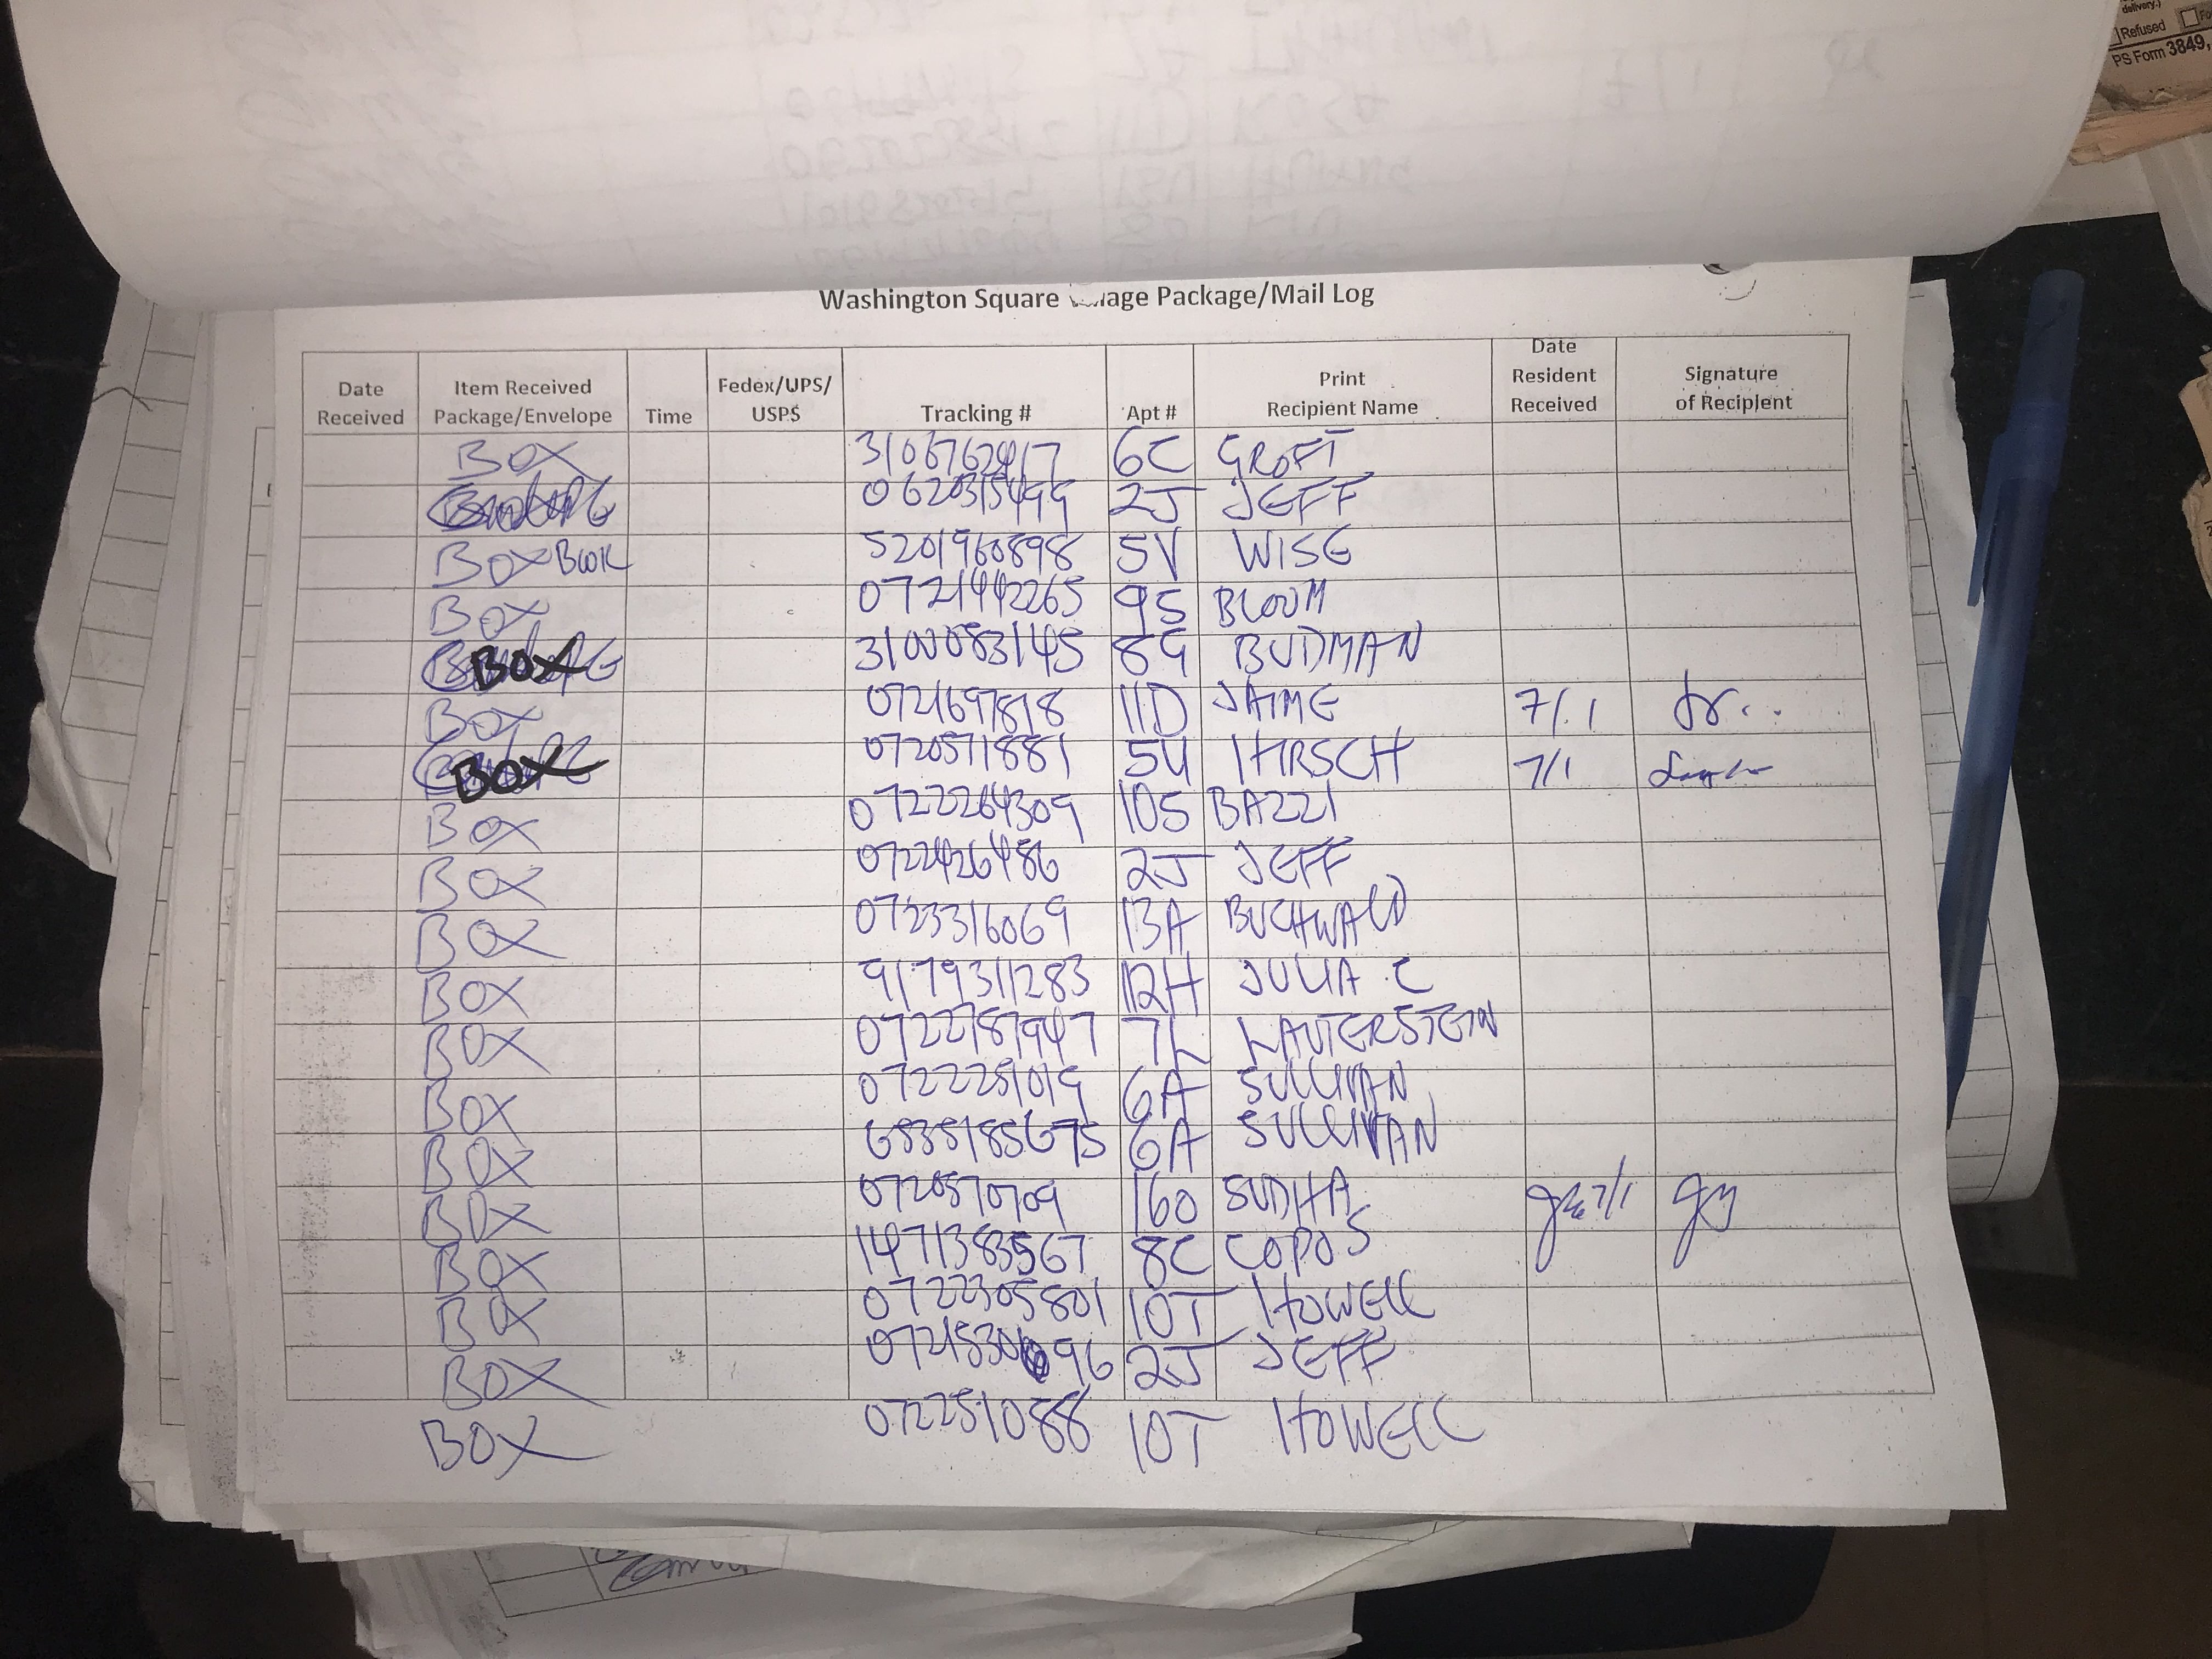 delivery.)
Refused
PS Form 3849,
Washington Square age Package/Mail Log
Date Received Item Received Package/Envelope Time Fedex/UPS/USPS Tracking # Apt # Print Recipient Name Date Resident Received Signature of Recipient
BOX 3106762917 6C GROFT
0620315499 2J JEFF
BOX BOOK 5201960898 5V WISE
BOX 0721442265 9S BLOOM
BOX 3100083145 8G BUDMAN
BOX 0721697818 11D JAIME 7/1
BOX 0720571881 5U HIRSCH 7/1
BOX 0722264309 10S BAZZI
BOX 0722426486 2J JEFF
BOX 0723316069 13A BUCHWALD
BOX 9179311283 12H JULIA C
BOX 0722787947 7K LAUTERSTEIN
BOX 0722251019 6A SULLIVAN
BOX 6835185675 6A SULLIVAN
BOX 0720570709 16O SUDHA 7/1
BOX 1471383567 8C COPOS
BOX 0722305801 10T HOWELL
BOX 2J JEFF
BOX 072251088 10T HOWELL